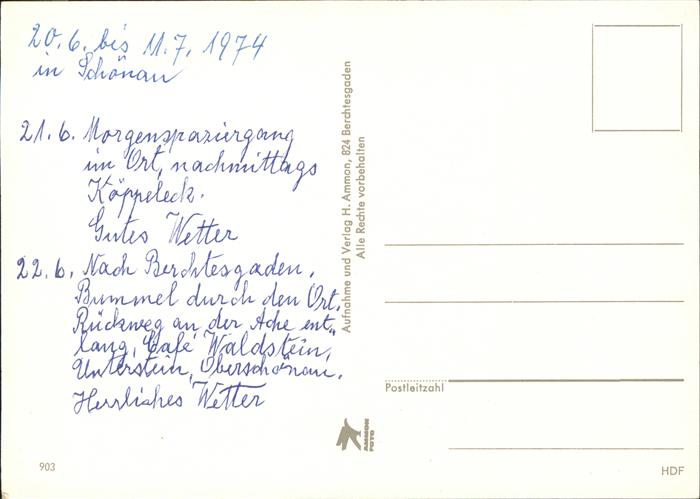 20.6. bis 11.7. 1974
in Schönau
21.6. Morgenspaziergang
im Ort, nachmittags
Köppeleck.
Gutes Wetter
22.6. Nach Berchtesgaden.
Bummel durch den Ort.
Rückweg an der Ache ent-
lang, Café Waldstein,
Unterstein, Oberschönau.
Herrliches Wetter
903
Aufnahme und Verlag H. Ammon, 824 Berchtesgaden
Alle Rechte vorbehalten
AMMON
FOTO
Postleitzahl
HDF